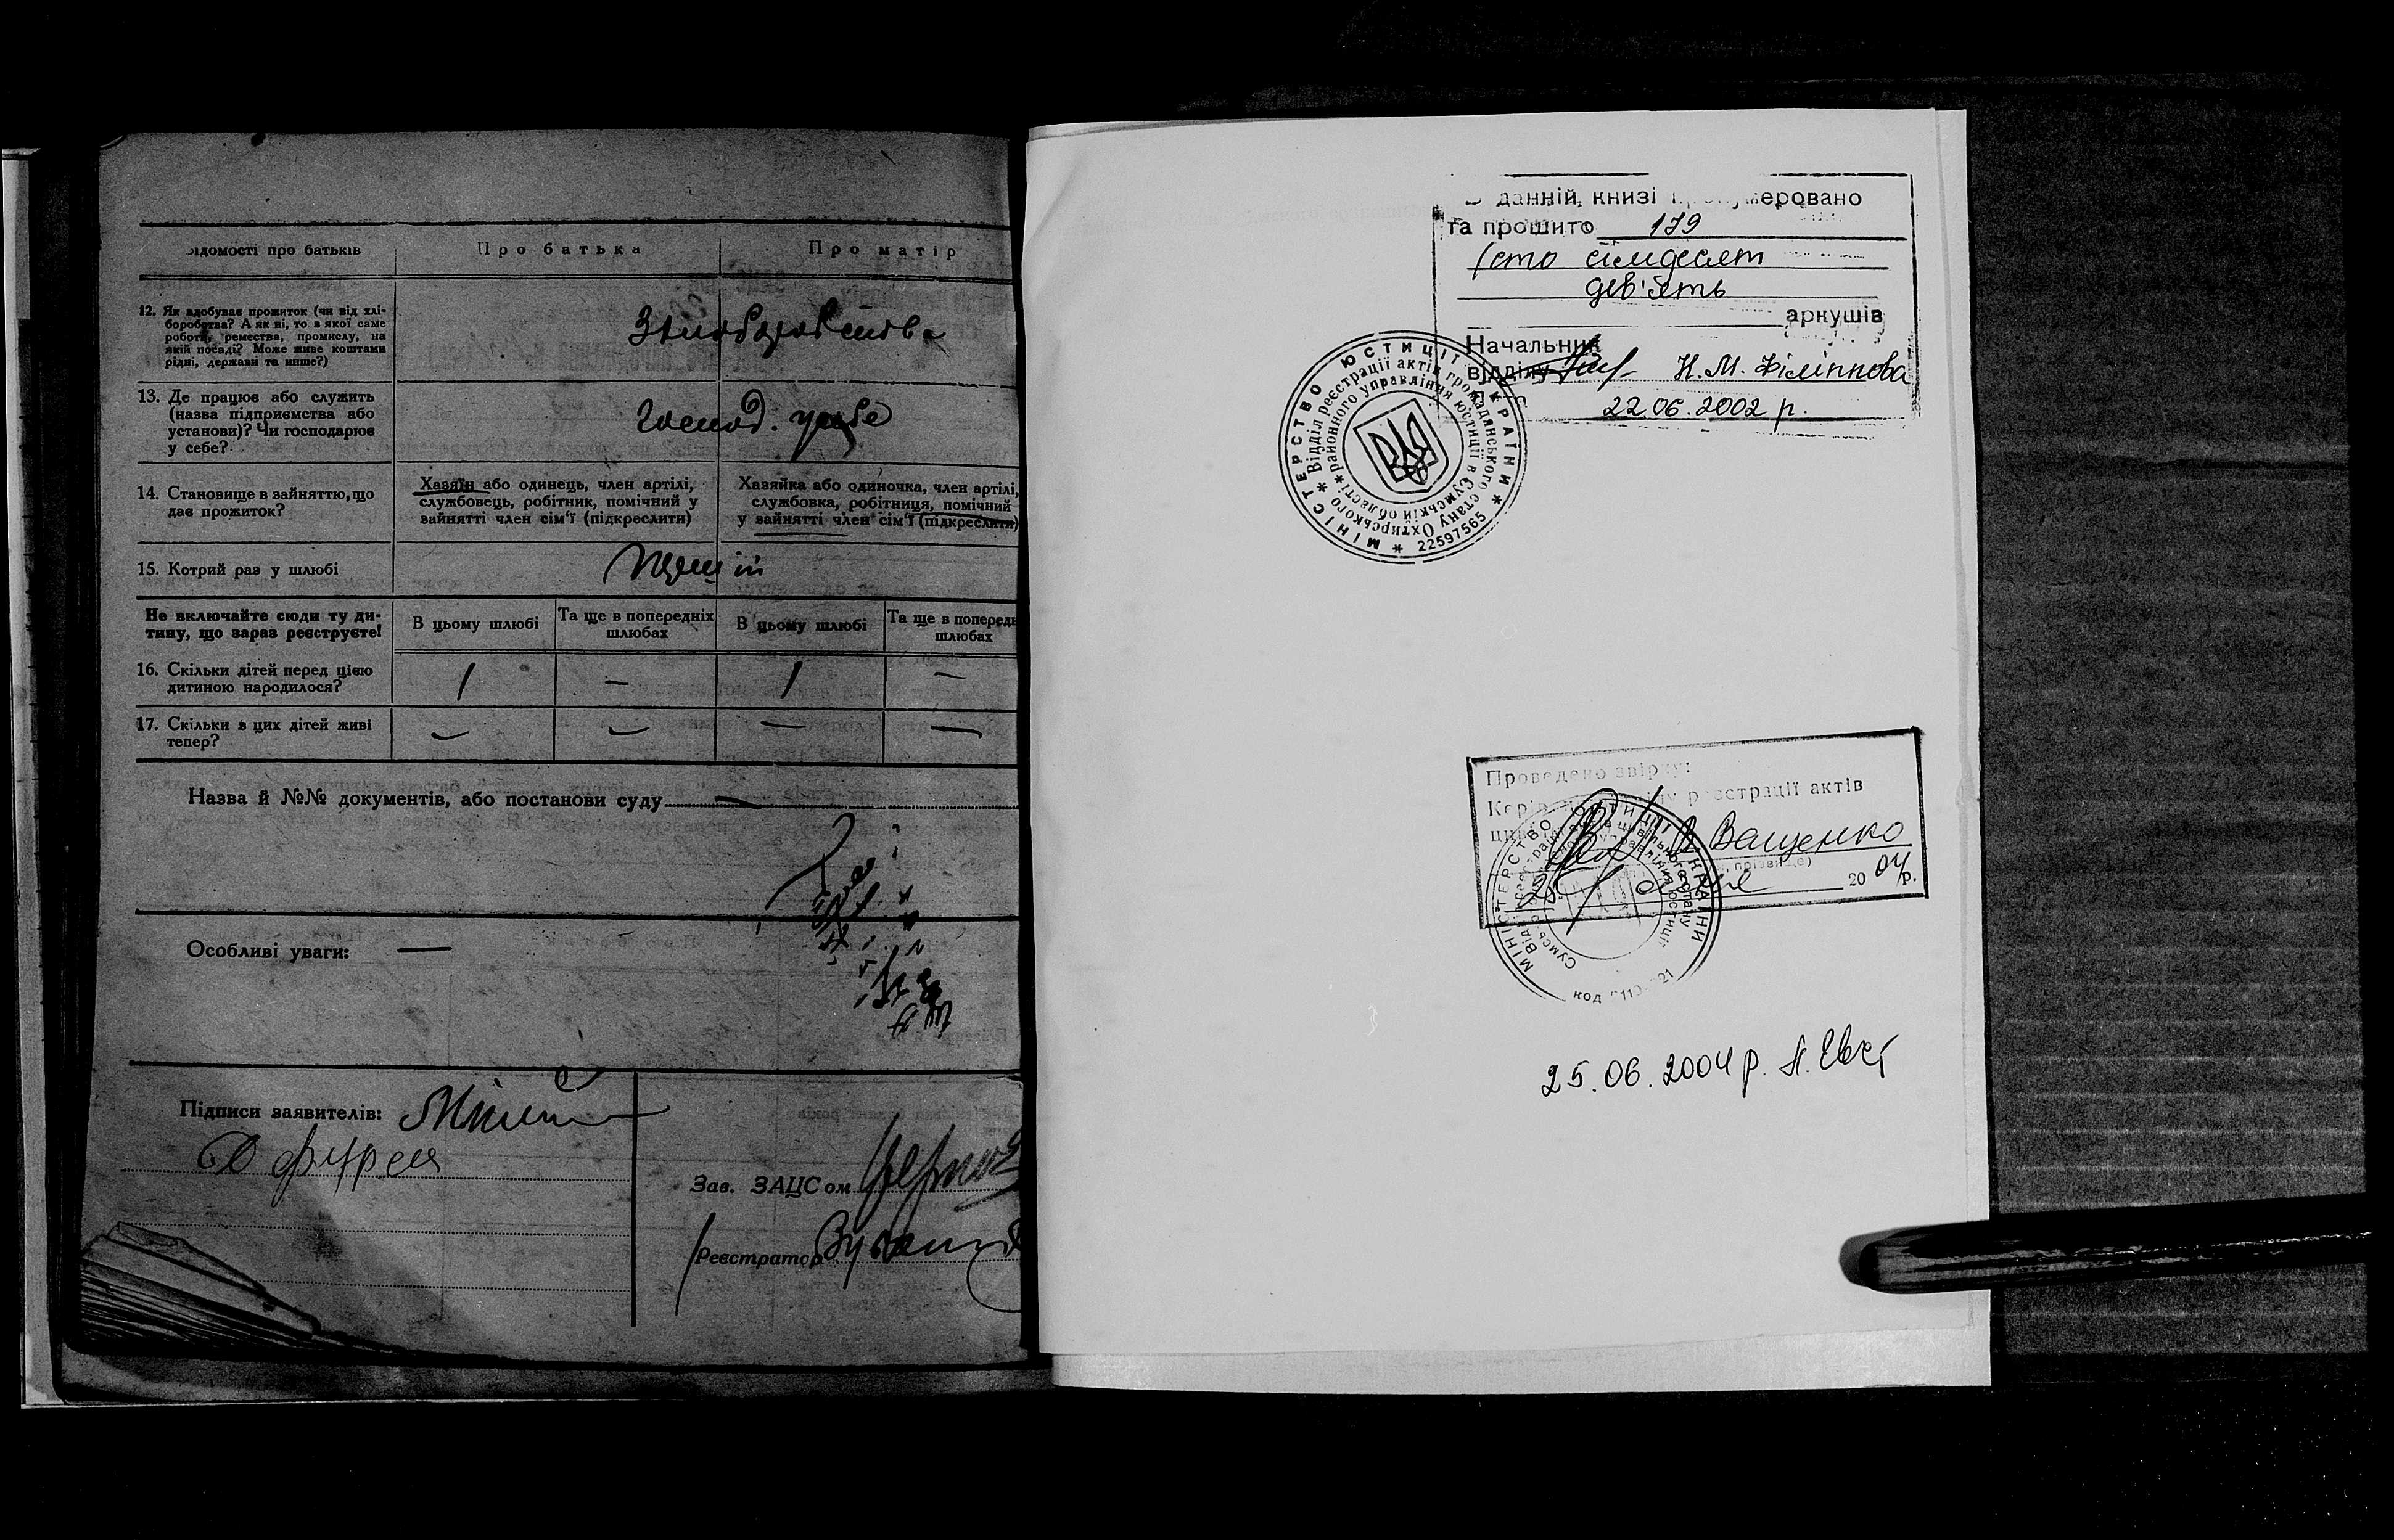 ідомості про батьків
Про батька
Про матір
12. Як здобуває прожиток (чи від хлі-
боробства? А як ні, то в якої саме
роботи, ремества, промислу, на
якій посаді? Може живе коштами
рідні, держави та инше?)
З хлоборобства
13. Де працює або служить
(назва підприємства або
установи)? Чи господарює
у себе?
Господ. у себе
14. Становище в зайняттю, що
дає прожиток?
Хазяїн або одинець, член артілі,
службовець, робітник, помічний у
зайнятті член сім'ї (підкреслити)
Хазяйка або одиночка, член артілі,
службовка, робітниця, помічний
у зайнятті член сім'ї (підкреслити)
15. Котрий раз у шлюбі
Не включайте сюди ту ди-
тину, що зараз реєструєте!
В цьому шлюбі
Та ще в попередніх
шлюбах
В цьому шлюбі
Та ще в поперед
шлюбах
16. Скільки дітей перед цією
дитиною народилося?
1 — 1 —
17. Скільки з цих дітей живі
тепер?
— — — —
Назва й №№ документів, або постанови суду —
Особливі уваги: —
Підписи заявителів:
Зав. ЗАЦСом
Реєстратор
В данній книзі пронумеровано
та прошито 179
(сто сімдесят
дев'ять
аркушів
Начальник
відділу Н.М. Філіппова
22.06.2002 р.
МІНІСТЕРСТВО ЮСТИЦІЇ УКРАЇНИ * 22597565 *
Відділ реєстрації актів громадянського стану Охтирського
районного управління юстиції в Сумській області
Проведено звірку:
реєстрації актів
Ващенко
прізвище)
25 2004 р.
МІНІСТЕРСТВО ЮСТИЦІЇ УКРАЇНИ
код
25.06.2004 р.